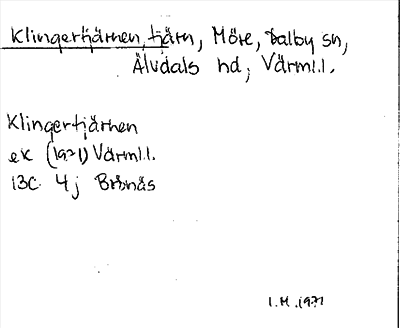 Klingertjärnen, tjärn, Möre, Dalby sn,
Älvdals hd, Värml.l.
Klingertjärnen
ek (1971) Värml.l.
13C 4j Brånäs
1.M.1971